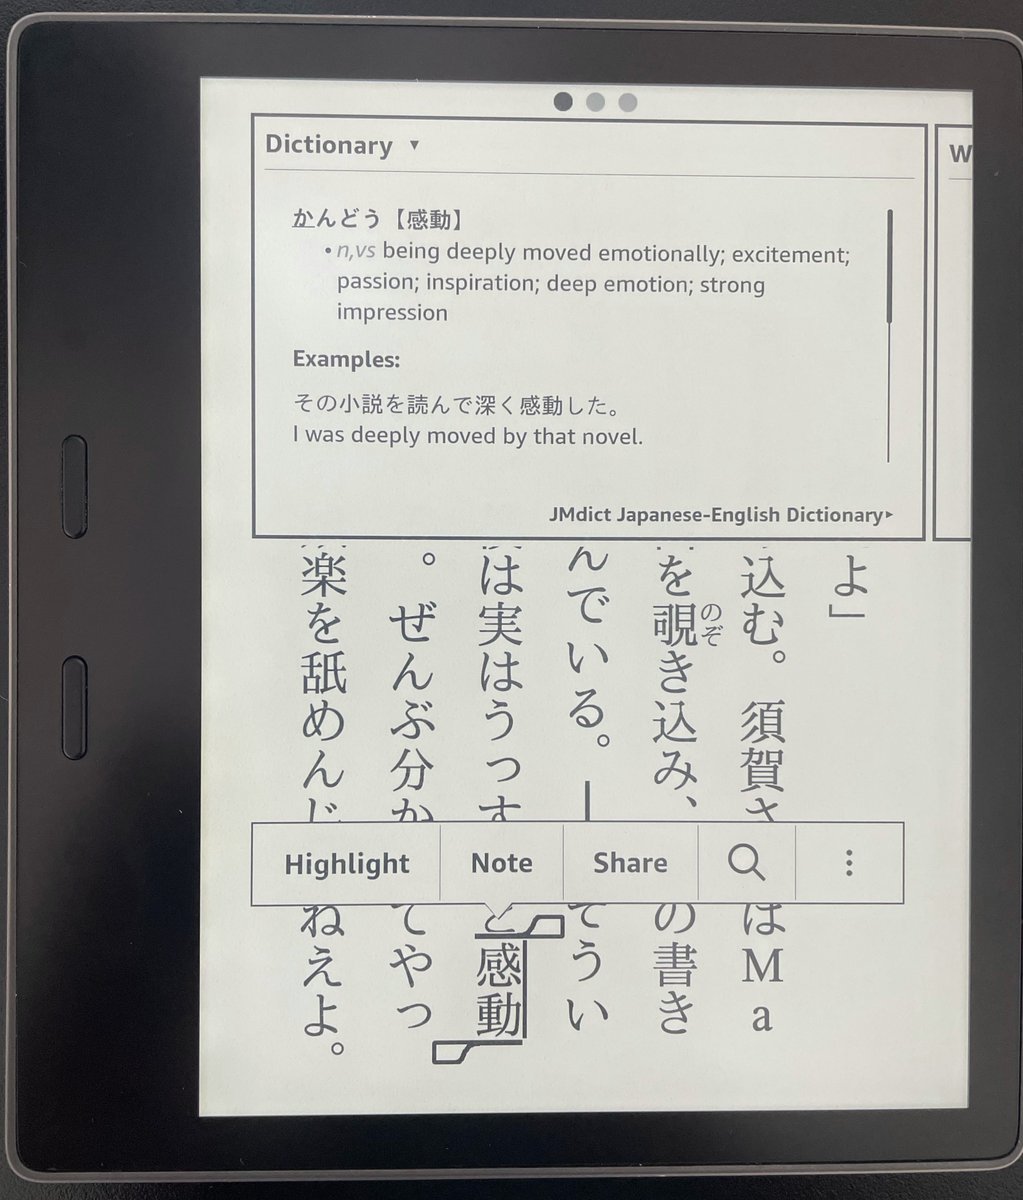 Dictionary ▼
W
かんどう【感動】
• n,vs being deeply moved emotionally; excitement;
passion; inspiration; deep emotion; strong
impression
Examples:
その小説を読んで深く感動した。
I was deeply moved by that novel.
JMdict Japanese-English Dictionary▸
よ」
込む。須賀さ
はMa
を覗き込み、
のぞ
の書き
んでいる。―
そうい
は実はうっす
と感動
。ぜんぶ分か
てやっ
楽を舐めんじ
ねえよ。
Highlight
Note
Share